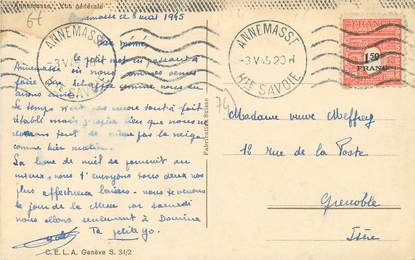 Annemasse, Vue générale
Annemasse ce 3 mai 1945
ANNEMASSE
-3 V 45 20 H
Hte SAVOIE
ANNEMASSE
-3 V 45 20 H
Hte SAVOIE
FRANCE
1,50
FRANC
74
mot en passant à
Annemasse où nous sommes venus
faire des
avions
Le temps n'est pas encore tout à fait
établi mais j'espère bien que nous ne
aurons tout de même pas la neige
comme hier matin.
La lune de miel se poursuit au
mieux. nous t'envoyons tous deux nos
plus affectueux baisers. nous
le jour de la Messe car samedi
nous allons seulement à
Ta petite
Madame veuve Meffrey
12 rue de la Poste
Grenoble
Isère
Fabrication Suisse
C. E. L. A. Genève S. 31/2